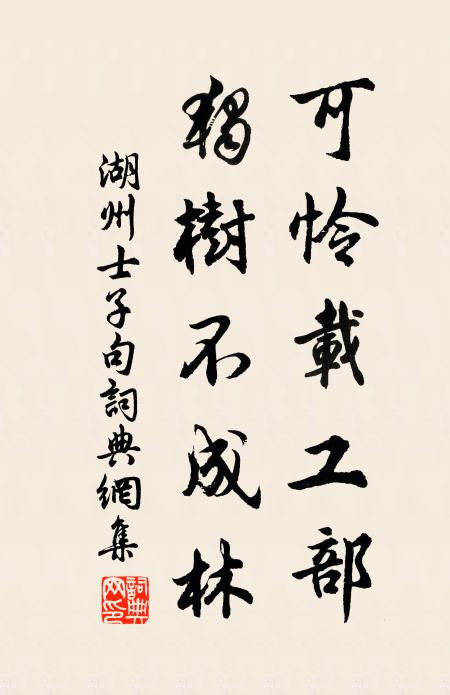 可怜載工部
獨樹不成林
湖州士子句詞典網集
詞典网印